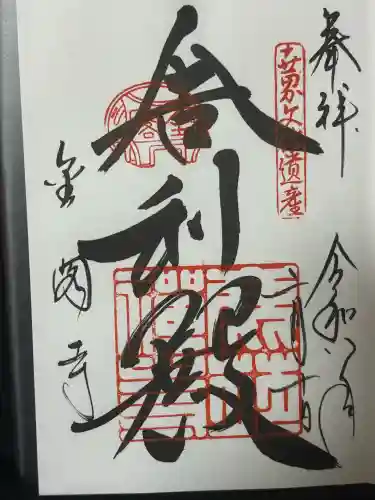 奉拝
世界文化遺産
令和八年
舎利殿
金閣寺